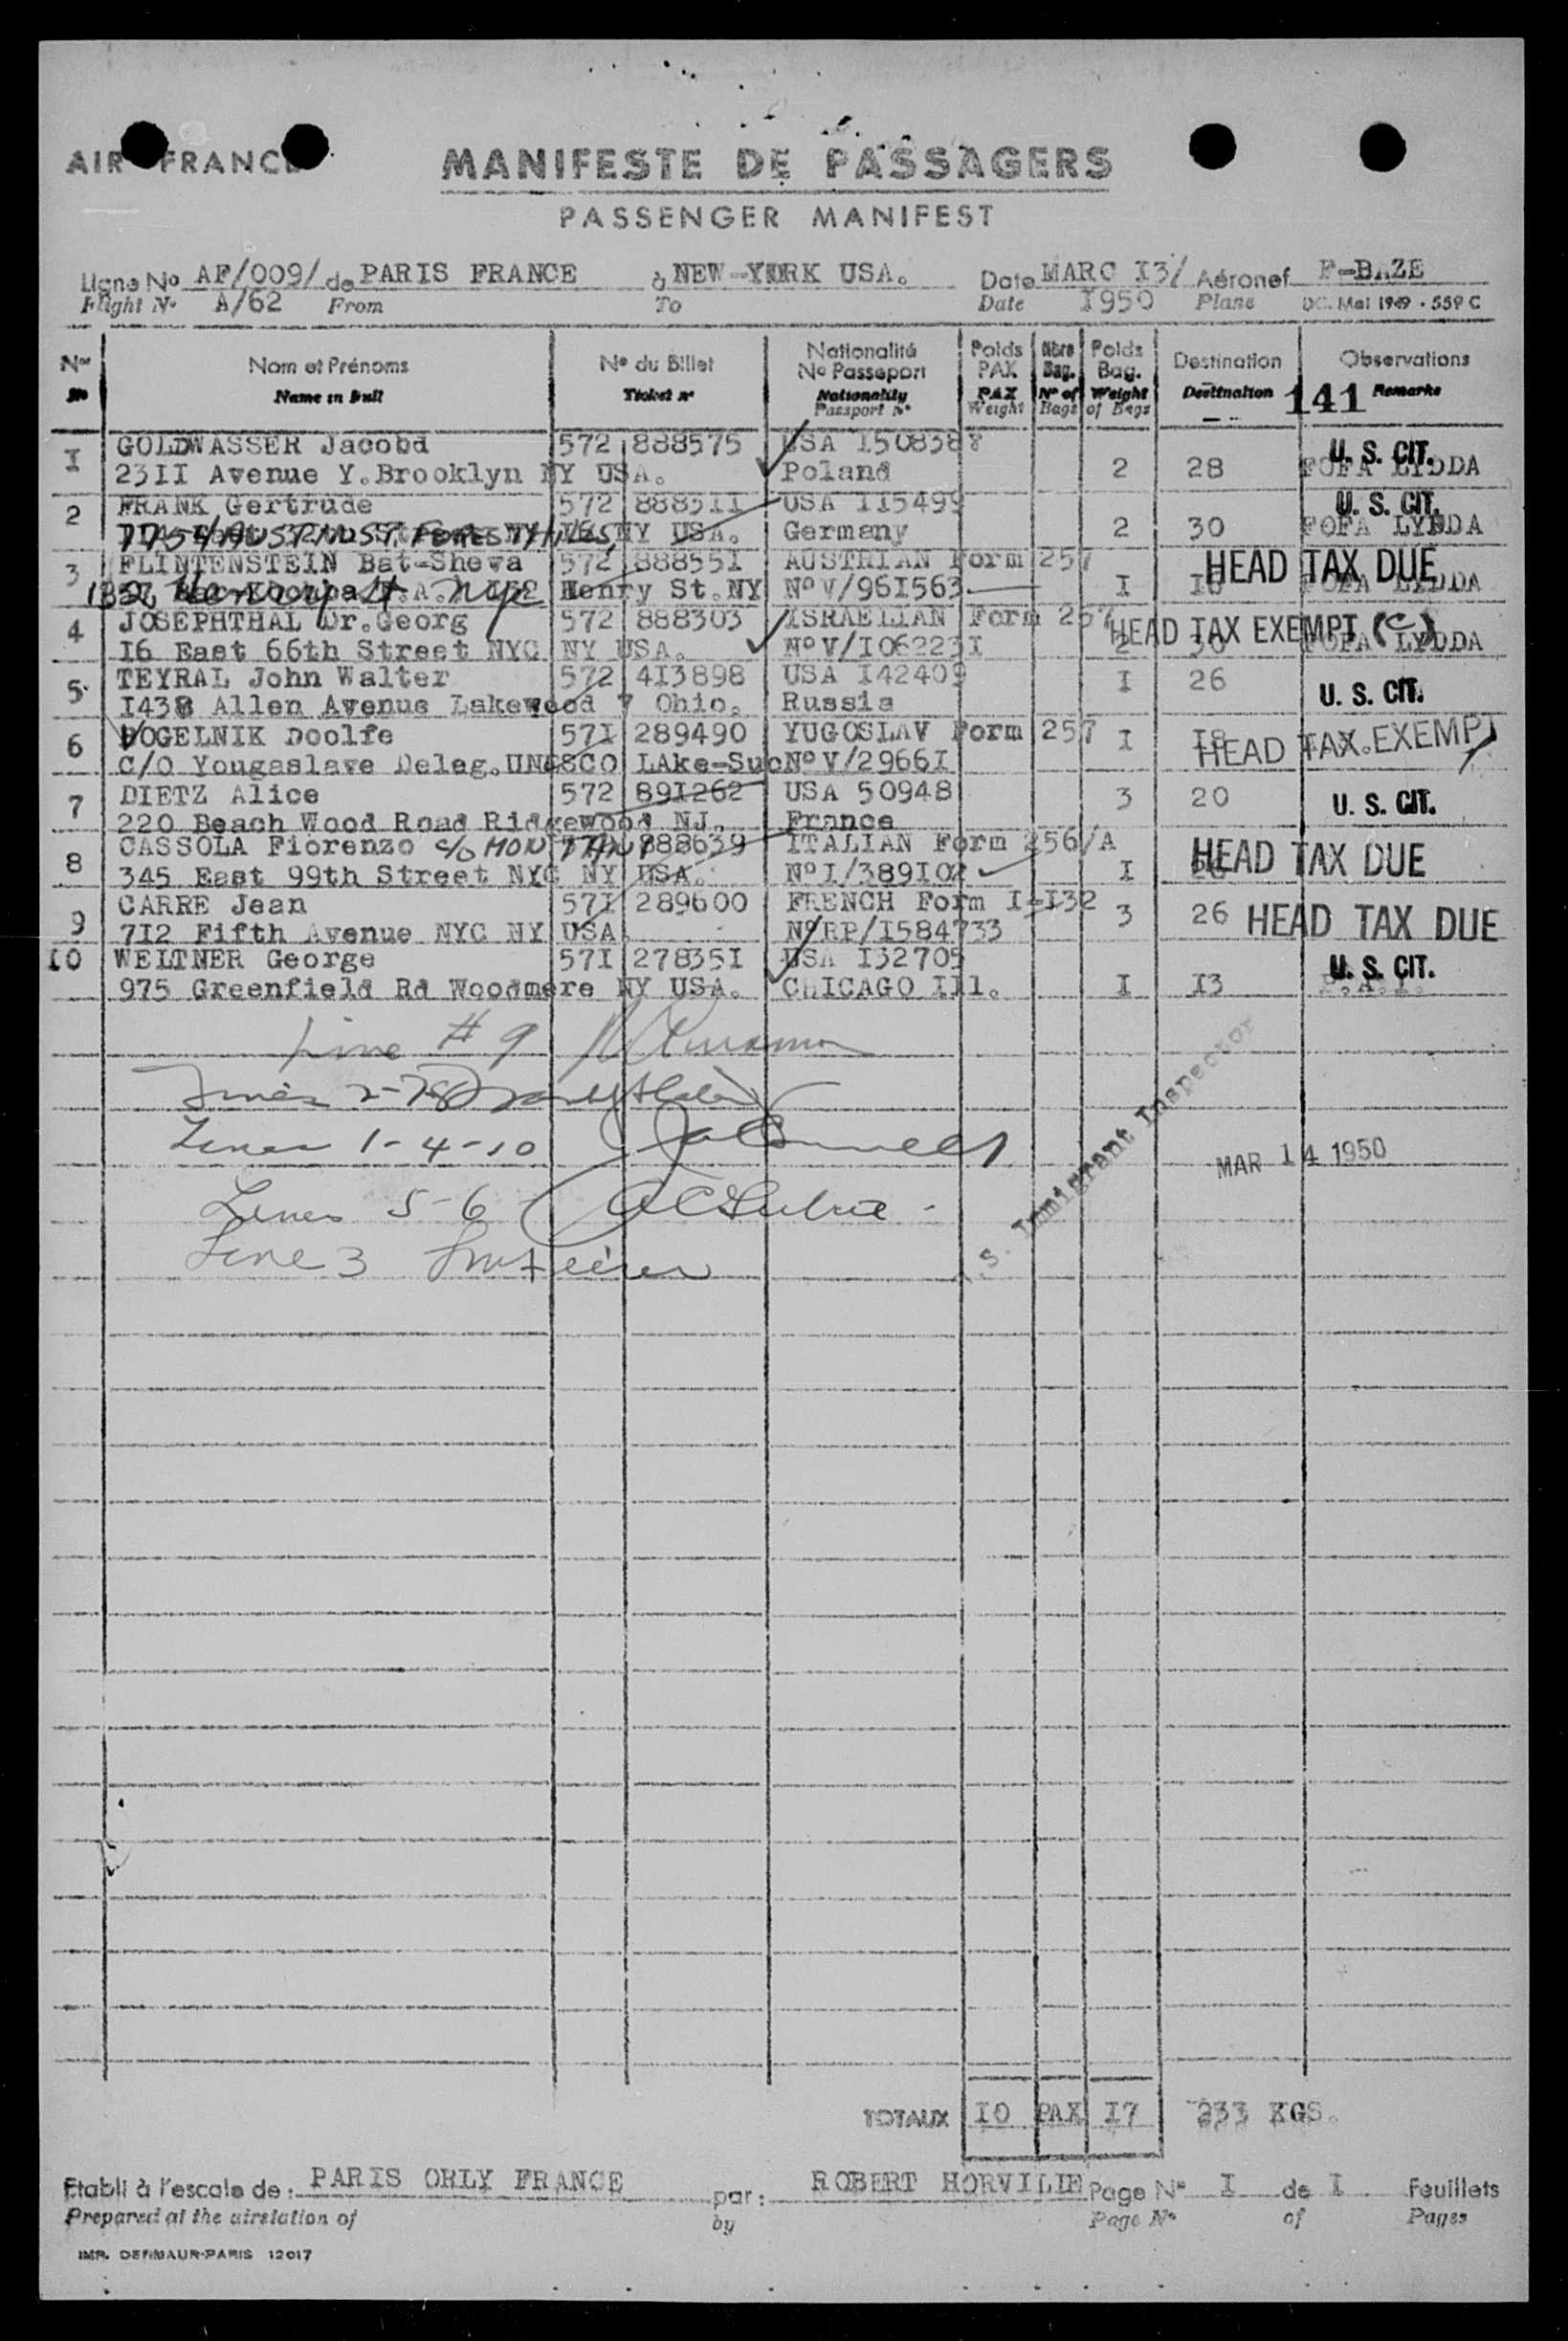 AIR FRANCE
MANIFESTE DE PASSAGERS
PASSENGER MANIFEST
Ligne No AF/009/ de PARIS FRANCE à NEW-YORK USA. Date MARC I3/ Aéronef F-BAZE
Flight No A/62 From To Date I950 Plane DC. Mai 1949 - 559 C
Nos Nom et Prénoms No du Billet Nationalité No Passeport Poids PAX Nbre Bag. Poids Bag. Destination Observations
No Name in full Ticket no Nationality Passport No PAX Weight No of Bags Weight of Bags Destination 141 Remarks
I GOLDWASSER Jacobd 572 888575 USA I508388 U. S. CIT.
23II Avenue Y.Brooklyn NY USA. Poland 2 28 FOFA LYDDA
2 FRANK Gertrude 572 8885II USA II5499 U. S. CIT.
FOREST HILLS, NY USA. Germany 2 30 FOFA LYDDA
3 FLINTENSTEIN Bat-Sheva 572 88855I AUSTRIAN Form 257 HEAD TAX DUE
Henry St. NY No V/96I563 I I8 FOFA LYDDA
4 JOSEPHTHAL Dr.Georg 572 888303 ISRAELIAN Form 257 HEAD TAX EXEMPT (C)
I6 East 66th Street NYC NY USA. No V/I06223I 2 30 FOFA LYDDA
5 TEYRAL John Walter 572 4I3898 USA I42409 I 26 U. S. CIT.
I438 Allen Avenue Lakewood 7 Ohio. Russia
6 VOGELNIK Doolfe 57I 289490 YUGOSLAV Form 257 I I8 HEAD TAX EXEMPT
C/O Yougaslave Deleg.UNESCO LAke-Suc No V/2966I
7 DIETZ Alice 572 89I262 USA 50948 3 20 U. S. CIT.
220 Beach Wood Road Ridgewood NJ. France
8 CASSOLA Fiorenzo c/o 888639 ITALIAN Form 256/A HEAD TAX DUE
345 East 99th Street NYC NY USA. No I/389I02 I
9 CARRE Jean 57I 289600 FRENCH Form I-I32 3 26 HEAD TAX DUE
7I2 Fifth Avenue NYC NY USA. No RP/I584733
I0 WELTNER George 57I 27835I USA I32705 U. S. CIT.
975 Greenfield Rd Woodmere NY USA. CHICAGO Ill. I I3
Line # 9
Lines 2-7-8
Lines 1-4-10
Lines 5-6
Line 3
S. Immigrant Inspector
MAR 14 1950
TOTAUX I0 PAX I7 233 KGS.
Etabli à l'escale de: PARIS ORLY FRANCE par: ROBERT HORVILIE Page No I de I Feuillets
Prepared at the airstation of by Page No of Pages
IMP. DEFMAUR-PARIS 12017